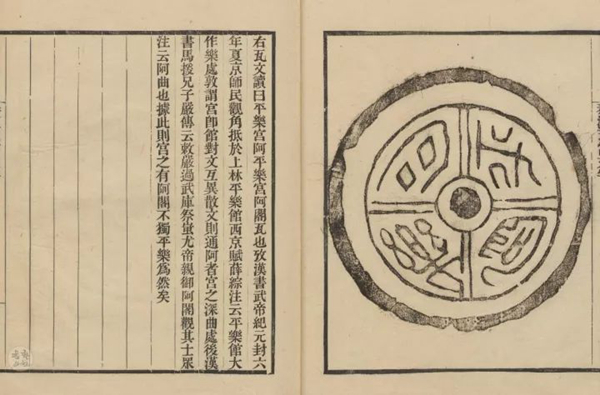 平樂宮阿
右瓦文讀曰平樂宮阿平樂宮阿閣瓦也攷漢書武帝紀元封六
年夏京師民觀角抵於上林平樂館西京賦薛綜注云平樂館大
作樂處敦謂宮卽館對文互異散文則通阿者宮之深曲處後漢
書馬援兄子嚴傳云敕嚴過武庫祭蚩尤帝親御阿閣觀其士眾
注云阿曲也據此則宮之有阿閣不獨平樂爲然矣